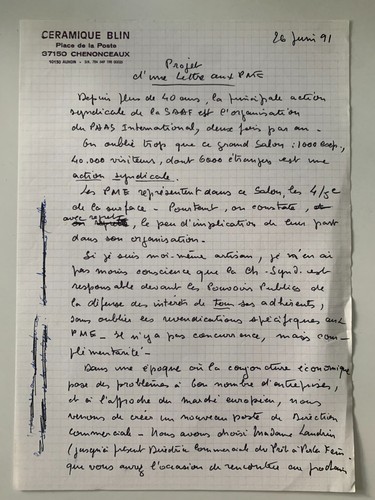 CERAMIQUE BLIN
Place de la Poste
37150 CHENONCEAUX
26 Juin 91
Projet
d'une Lettre aux PME
Depuis plus de 40 ans, la principale action
syndicale de la est l'organisation
du PAAS International, deux fois par an.
On oublie trop que ce grand Salon : 1000 exp.,
40.000 visiteurs, dont 6000 étrangers est une
action syndicale.
Les PME représentent dans ce Salon, les 4/5e
de la surface - Pourtant, on constate,
avec regret, le peu d'implication de leur part
dans son organisation.
Si je suis moi-même artisan, je n'en ai
pas moins conscience que la Ch. Synd. est
responsable devant les Pouvoirs Publics de
la défense des intérêts de tous ses adhérents,
sans oublier les revendications spécifiques aux
PME - Il n'y a pas concurrence, mais com-
plémentarité -
Dans une époque où la conjoncture économique
pose des problèmes à bon nombre d'entreprises,
et à l'approche du marché européen, nous
venons de créer un nouveau poste de Direction
commerciale - Nous avons choisi Madame Landrin
(jusqu'à présent Directrice Commerciale du
que vous aurez l'occasion de rencontrer au prochain